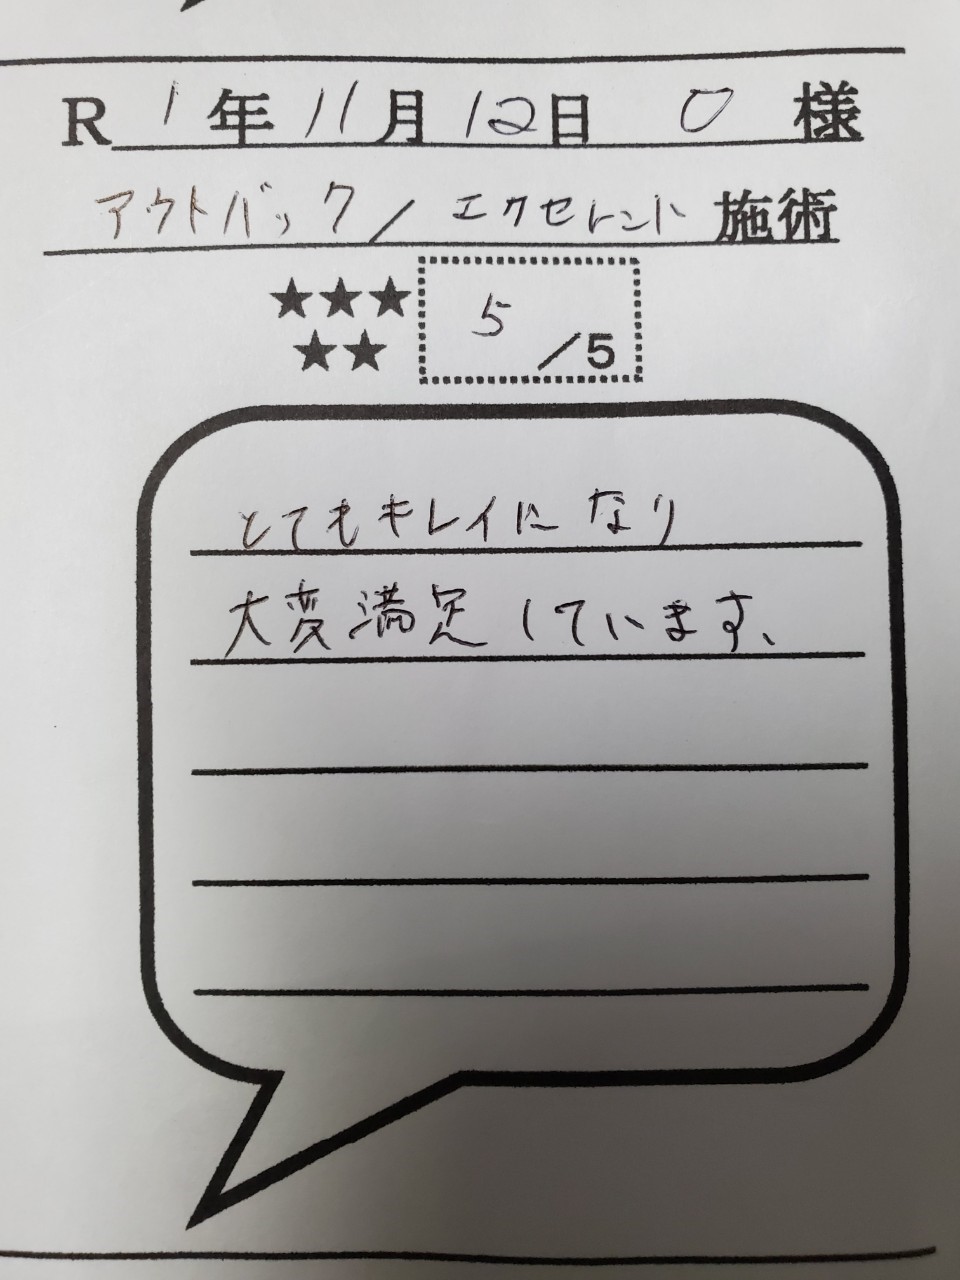 R 1年 11月 12日 O 様
アウトバック/エクセレント 施術
★★★
★★
5/5
とてもキレイになり
大変満足しています、